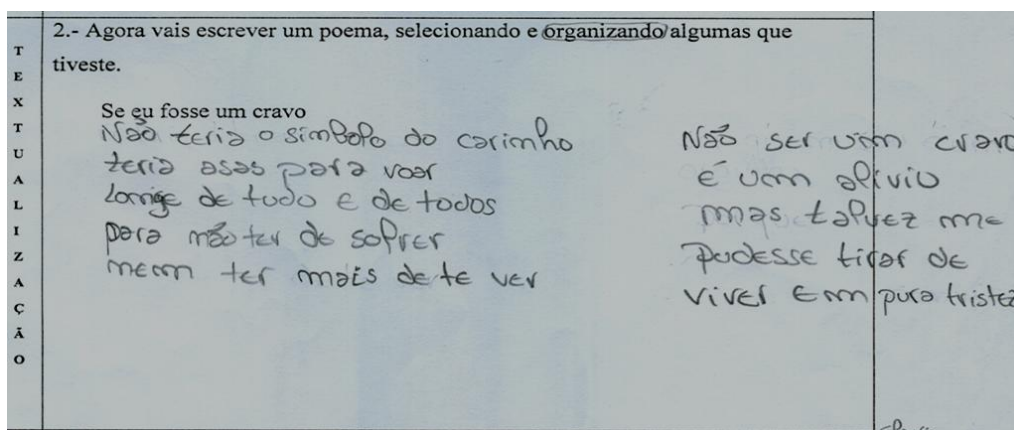 2.- Agora vais escrever um poema, selecionando e organizando algumas que
tiveste.
TEXTUALIZAÇÃO
Se eu fosse um cravo
Não teria o simbolo do carinho
teria asas para voar
Longe de tudo e de todos
para não ter de sofrer
nem ter mais de te ver
Não ser um cravo
é um alívio
mas talvez me
pudesse tirar de
viver em pura tristez